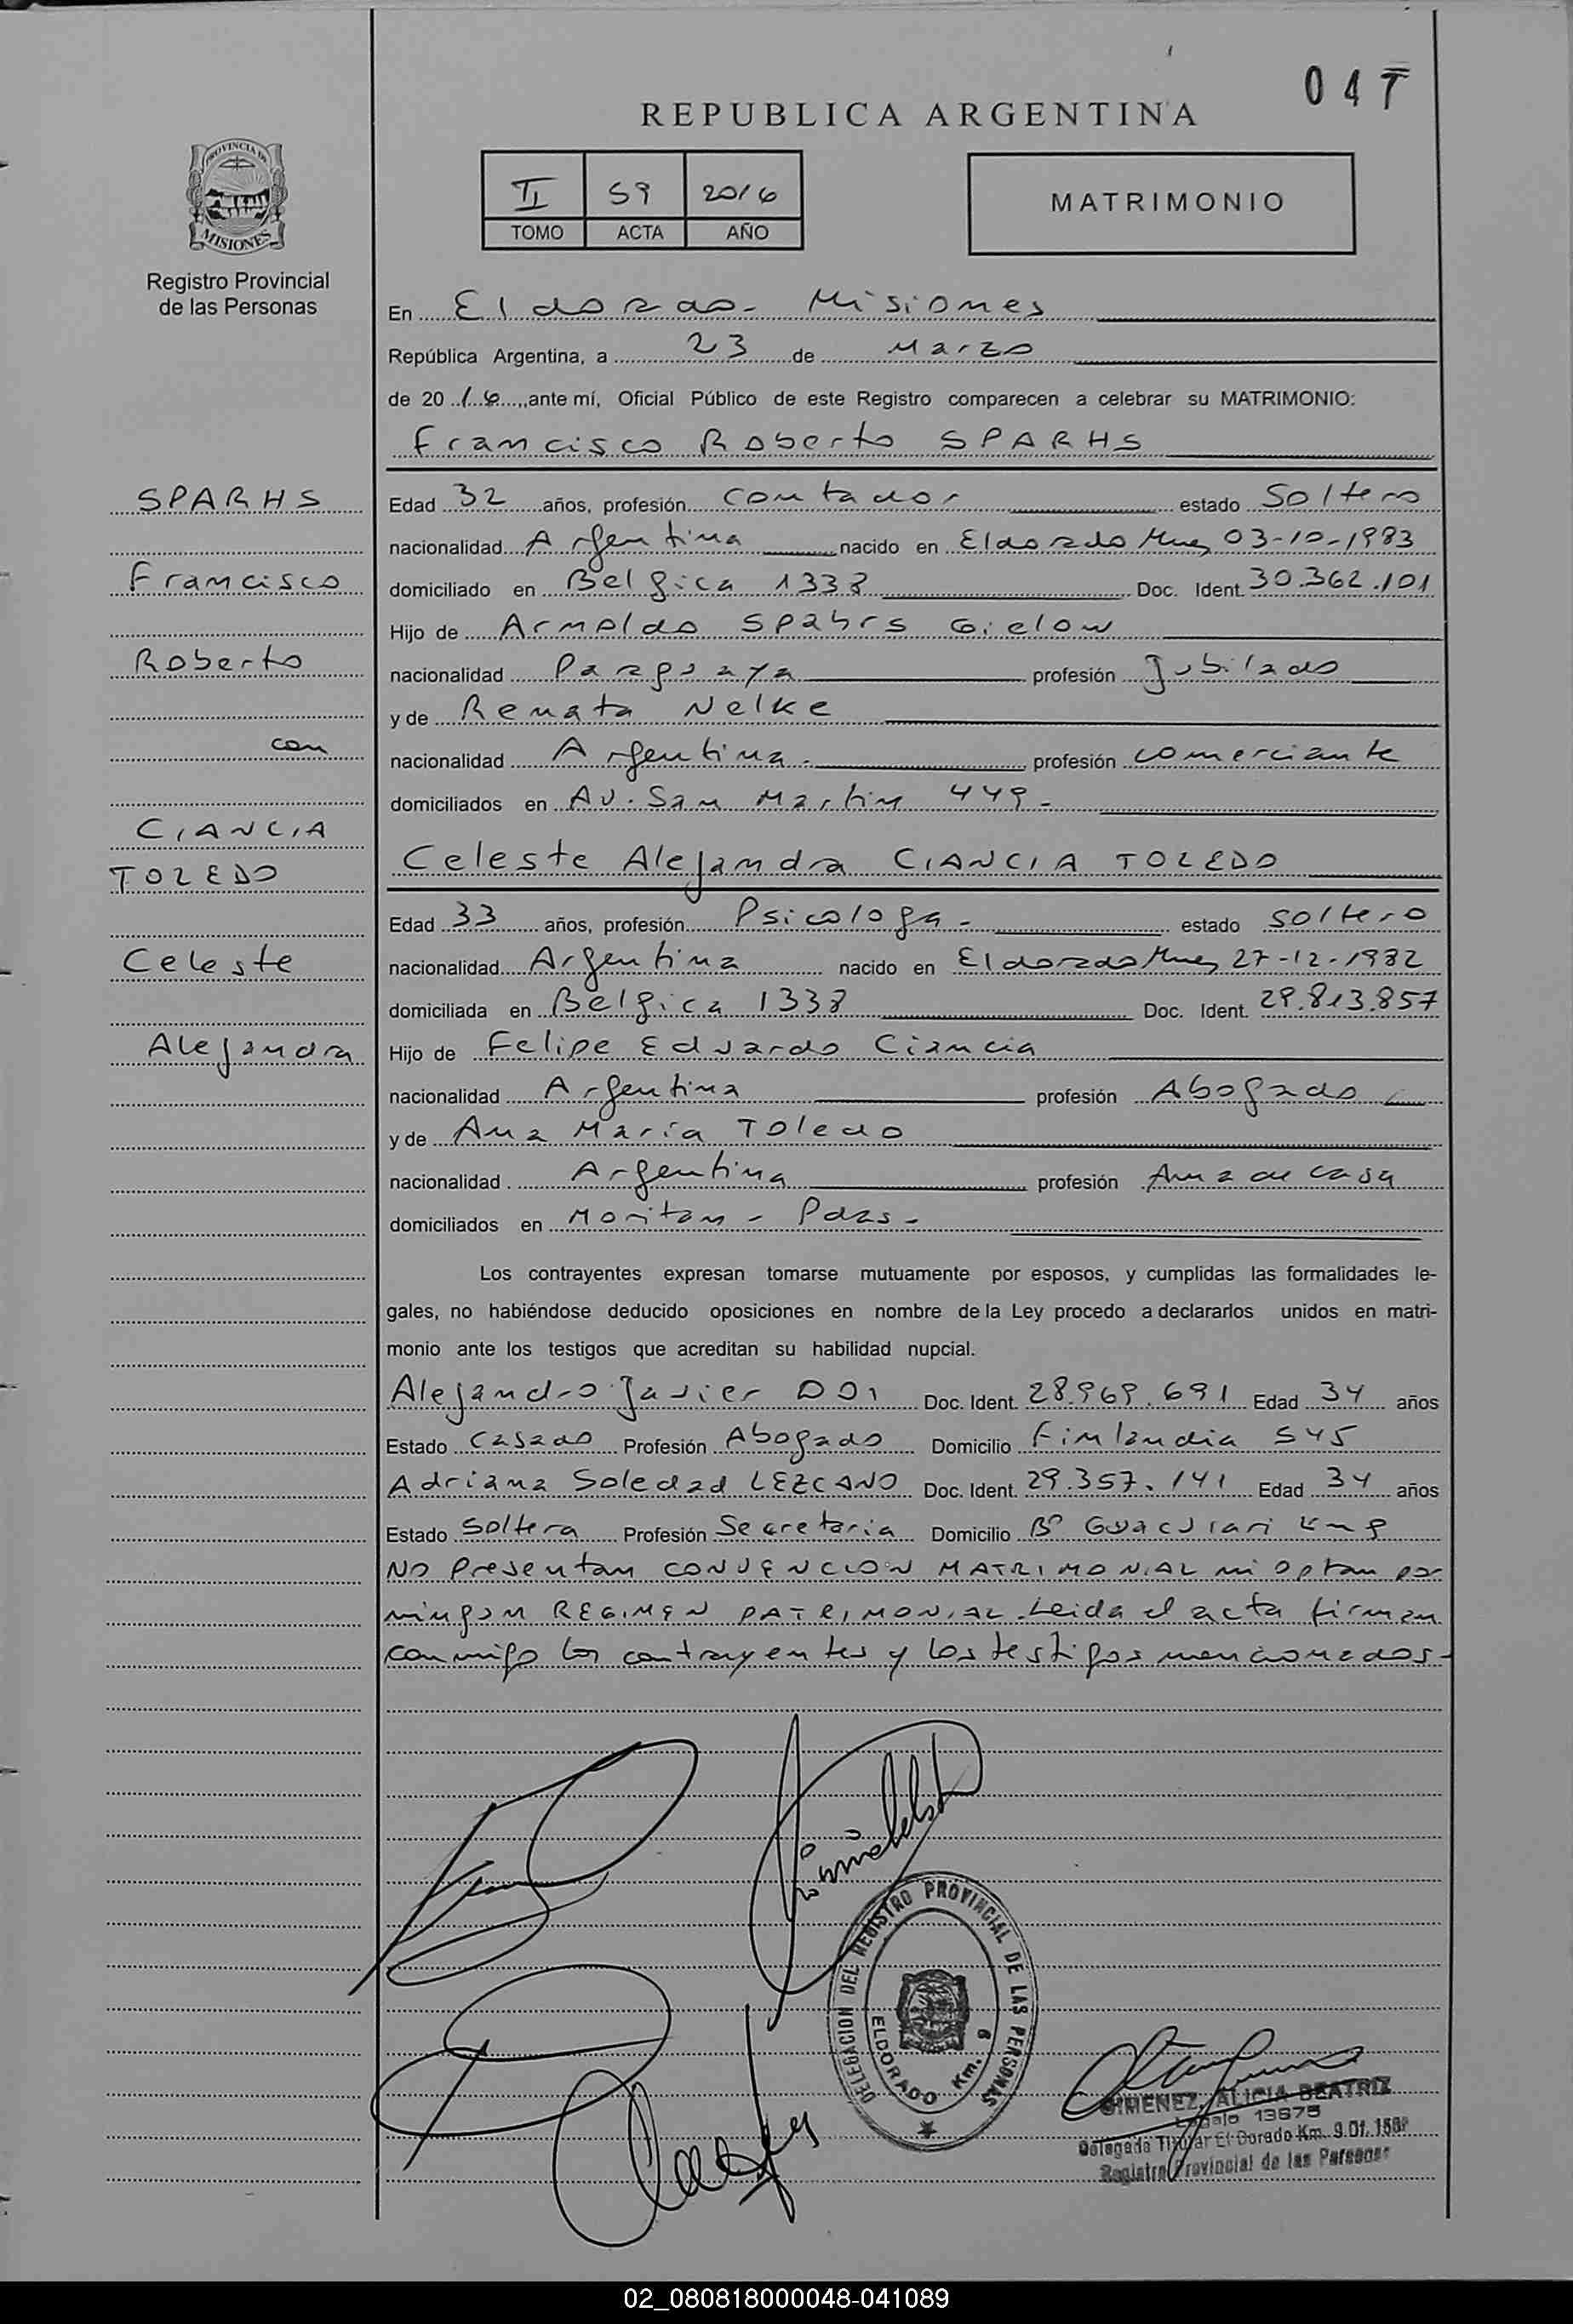 047
REPUBLICA ARGENTINA
PROVINCIA DE
MISIONES
Registro Provincial
de las Personas
II 59 2016
TOMO ACTA AÑO
MATRIMONIO
En Eldorado - Misiones
República Argentina, a 23 de Marzo
de 2016, ante mí, Oficial Público de este Registro comparecen a celebrar su MATRIMONIO:
Francisco Roberto SPARHS
SPARHS
Francisco
Roberto
con
CIANCIA
TOLEDO
Celeste
Alejandra
Edad 32 años, profesión Contador estado Soltero
nacionalidad Argentina nacido en Eldorado Mnes 03-10-1983
domiciliado en Belgica 1338 Doc. Ident. 30.362.101
Hijo de Arnoldo Spahrs Gielow
nacionalidad Paraguaya profesión Jubilado
y de Renata Nelke
nacionalidad Argentina - profesión comerciante
domiciliados en Av. San Martin 449 -
Celeste Alejandra CIANCIA TOLEDO
Edad 33 años, profesión Psicologa - estado soltero
nacionalidad Argentina nacido en Eldorado Mnes 27-12-1982
domiciliada en Belgica 1338 Doc. Ident. 29.813.857
Hijo de Felipe Eduardo Ciancia
nacionalidad Argentina profesión Abogado
y de Ana Maria Toledo
nacionalidad Argentina profesión Ama de casa
domiciliados en - Pdas -
Los contrayentes expresan tomarse mutuamente por esposos, y cumplidas las formalidades le-
gales, no habiéndose deducido oposiciones en nombre de la Ley procedo a declararlos unidos en matri-
monio ante los testigos que acreditan su habilidad nupcial.
Alejandro Javier Doc. Ident. 28.969.691 Edad 34 años
Estado Casado Profesión Abogado Domicilio Finlandia 545
Adriana Soledad LEZCANO Doc. Ident. 29.357.141 Edad 34 años
Estado Soltera Profesión Secretaria Domicilio B° Guacurari Km 9
No Presentan CONVENCION MATRIMONIAL ni optan por
ningun REGIMEN PATRIMONIAL. Leida el acta firman
conmigo los contrayentes y los testigos mencionados -
DELEGACION DEL REGISTRO PROVINCIAL DE LAS PERSONAS
ELDORADO Km. 9
GIMENEZ, ALICIA BEATRIZ
Legajo 13675
Delegada Titular El Dorado Km. 9 Of.
Registro Provincial de las Personas
02_080818000048-041089